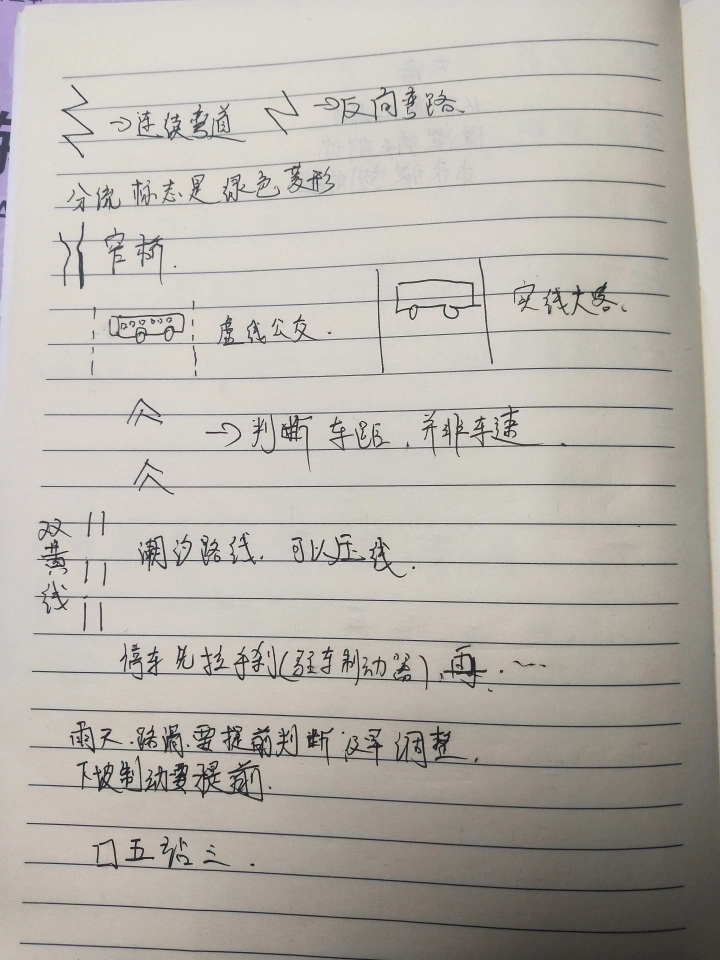 →连续弯道 →反向弯路.
分流标志是绿色菱形
窄桥.
虚线公交. 实线大客.
→判断车距,并非车速.
双黄线 潮汐路线.可以压线.
停车先拉手刹(驻车制动器),再.…
雨天.路滑.要提前判断 调整.
下坡制动要提前.
口五站三.